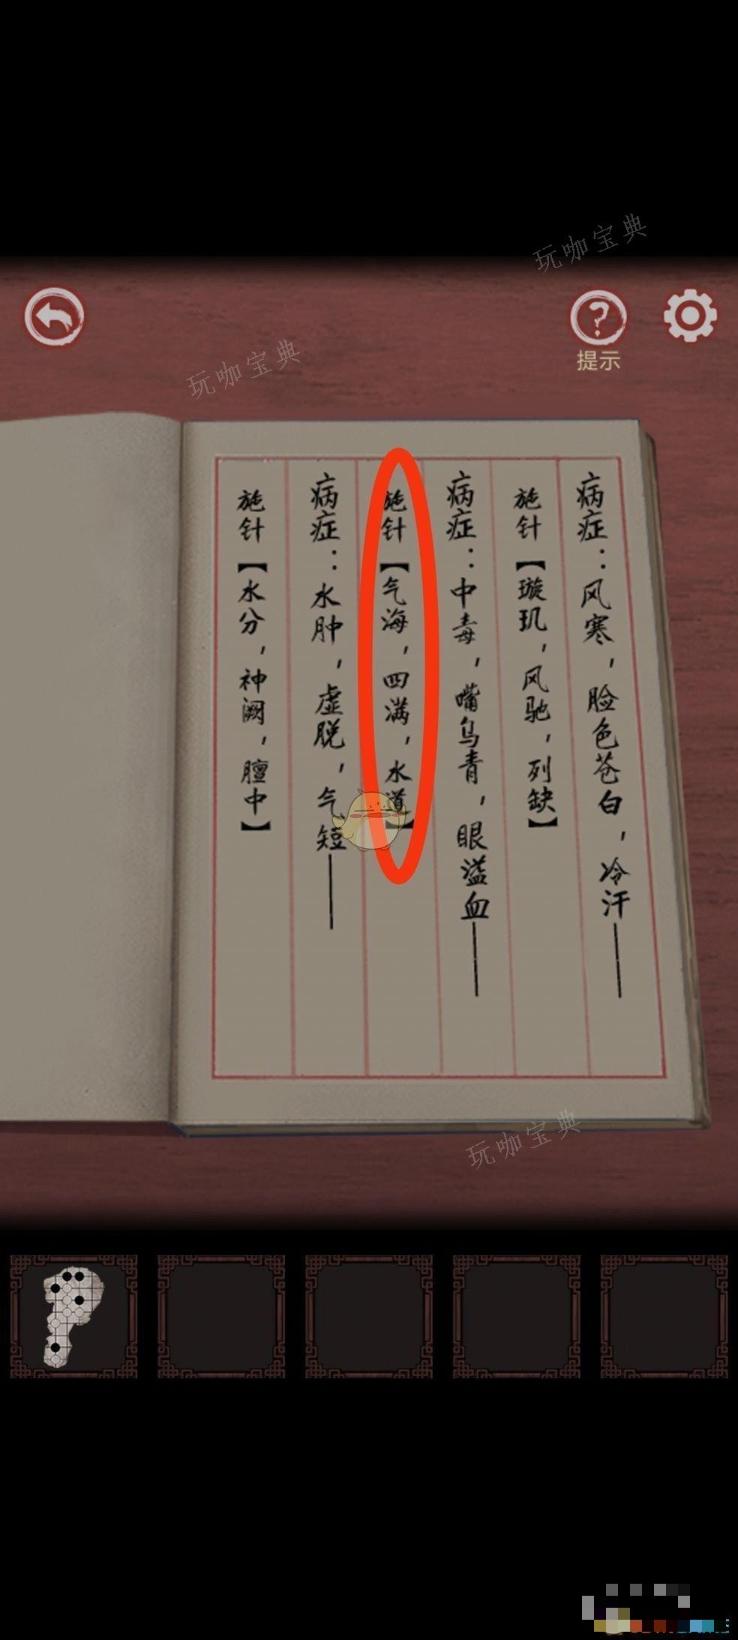 玩咖宝典
提示
玩咖宝典
病症：风寒，脸色苍白，冷汗——
施针【璇玑，风驰，列缺】
病症：中毒，嘴乌青，眼溢血——
施针【气海，四满，水道】
病症：水肿，虚脱，气短——
施针【水分，神阙，膻中】
玩咖宝典